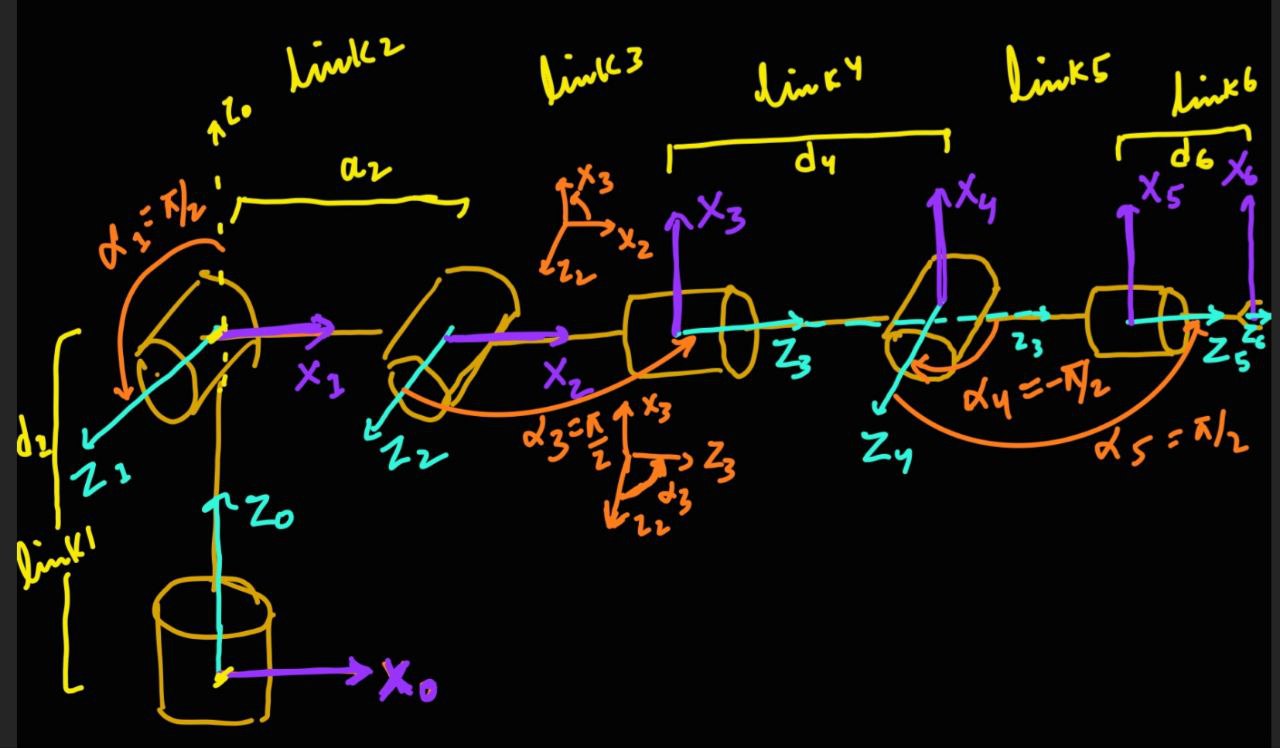 Link2
Link3
Link4
Link5
Link6
z0
a2
d4
d6
α1=π/2
x3
x2
z2
x3
x4
x5
x6
x1
x2
z3
z3
z5
z6
d1
z1
z2
α3=π/2
x3
z3
α3
z2
z4
α4=-π/2
α5=π/2
z0
Link1
x0